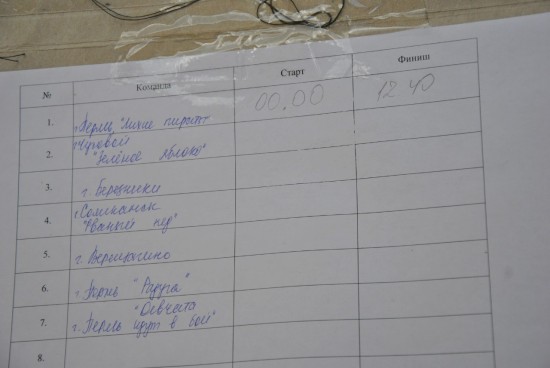 № Команда Старт Финиш
1. г. Пермь "Лихие пираты" 00.00 12 40
2. г. Чусовой
"Зелёное яблоко"
3. г. Березники
4. г. Соликамск
"Рваный кед"
5. г. Верещагино
6. г. Пермь "Радуга"
7. "Девчата
г. Пермь идут в бой"
8.